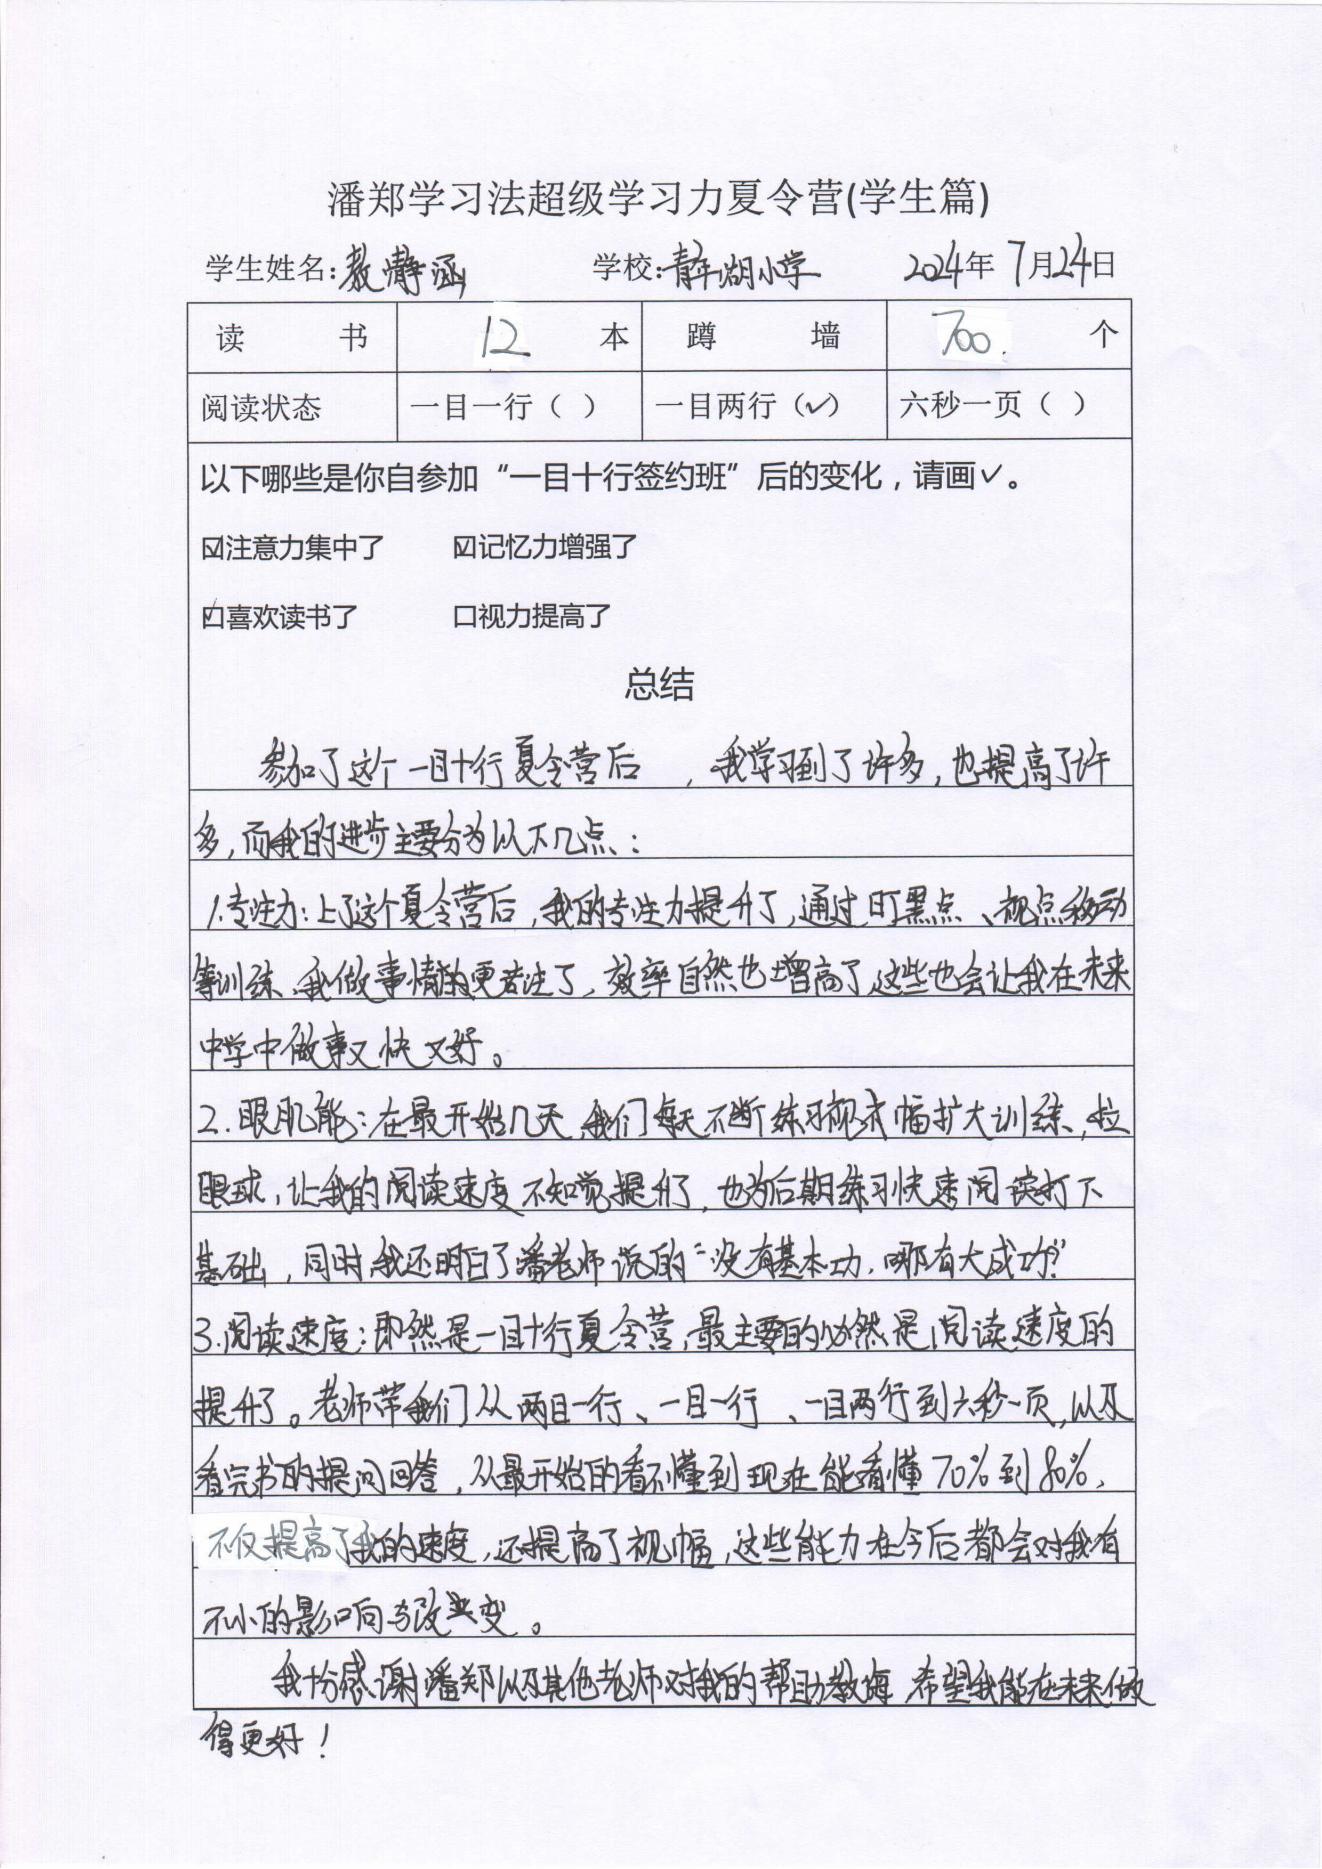 潘郑学习法超级学习力夏令营(学生篇)
学生姓名:敖静涵 学校:青年湖小学 2024年7月24日
读 书 12 本 蹲 墙 700 个
阅读状态 一目一行（ ） 一目两行（✓） 六秒一页（ ）
以下哪些是你自参加“一目十行签约班”后的变化，请画✓。
☑注意力集中了 ☑记忆力增强了
☑喜欢读书了 口视力提高了
总结
参加了这个一目十行夏令营后 ，我学习到了许多，也提高了许
多，而我的进步主要分为以下几点：
1.专注力：上了这个夏令营后，我的专注力提升了，通过盯黑点、视点移动
等训练，我做事情的更专注了，效率自然也增高了，这些也会让我在未来
中学中做事又快又好。
2.眼肌能：在最开始几天，我们每天不断练习视幅扩大训练，拉
眼球，让我的阅读速度不知觉提升了，也为后期练习快速阅读打下
基础，同时，我还明白了潘老师说的“没有基本功，哪有大成功”
3.阅读速度：即然是一目十行夏令营，最主要的必然是阅读速度的
提升了。老师带我们从两目一行、一目一行、一目两行到六秒一页，以及
看完书的提问回答，从最开始的看不懂到现在能看懂70%到80%，
不仅提高了我的速度，还提高了视幅，这些能力在今后都会对我有
不小的影响与改变。
我十分感谢潘郑以及其他老师对我的帮助教诲，希望我能在未来做
得更好！